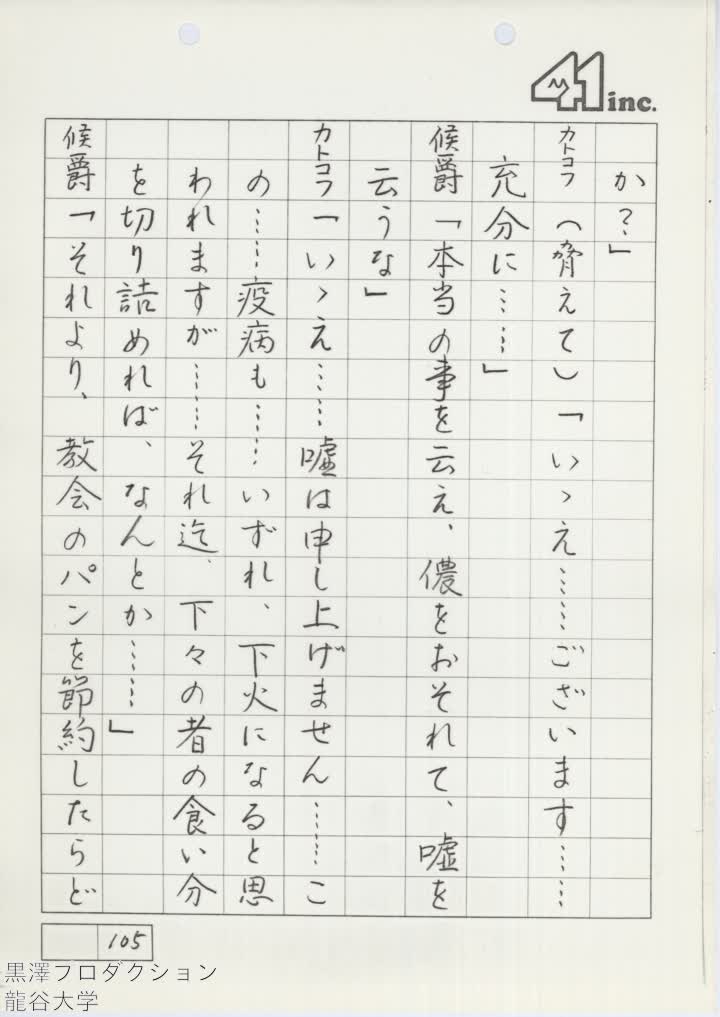 41 inc.
か？」
カトコフ（脅えて）「いゝえ……ございます……
充分に……」
候爵「本当の事を云え、儂をおそれて、嘘を
云うな」
カトコフ「いゝえ……嘘は申し上げません……こ
の……疫病も……いずれ、下火になると思
われますが……それ迄、下々の者の食い分
を切り詰めれば、なんとか……」
候爵「それより、教会のパンを節約したらど
105
黒澤プロダクション
龍谷大学